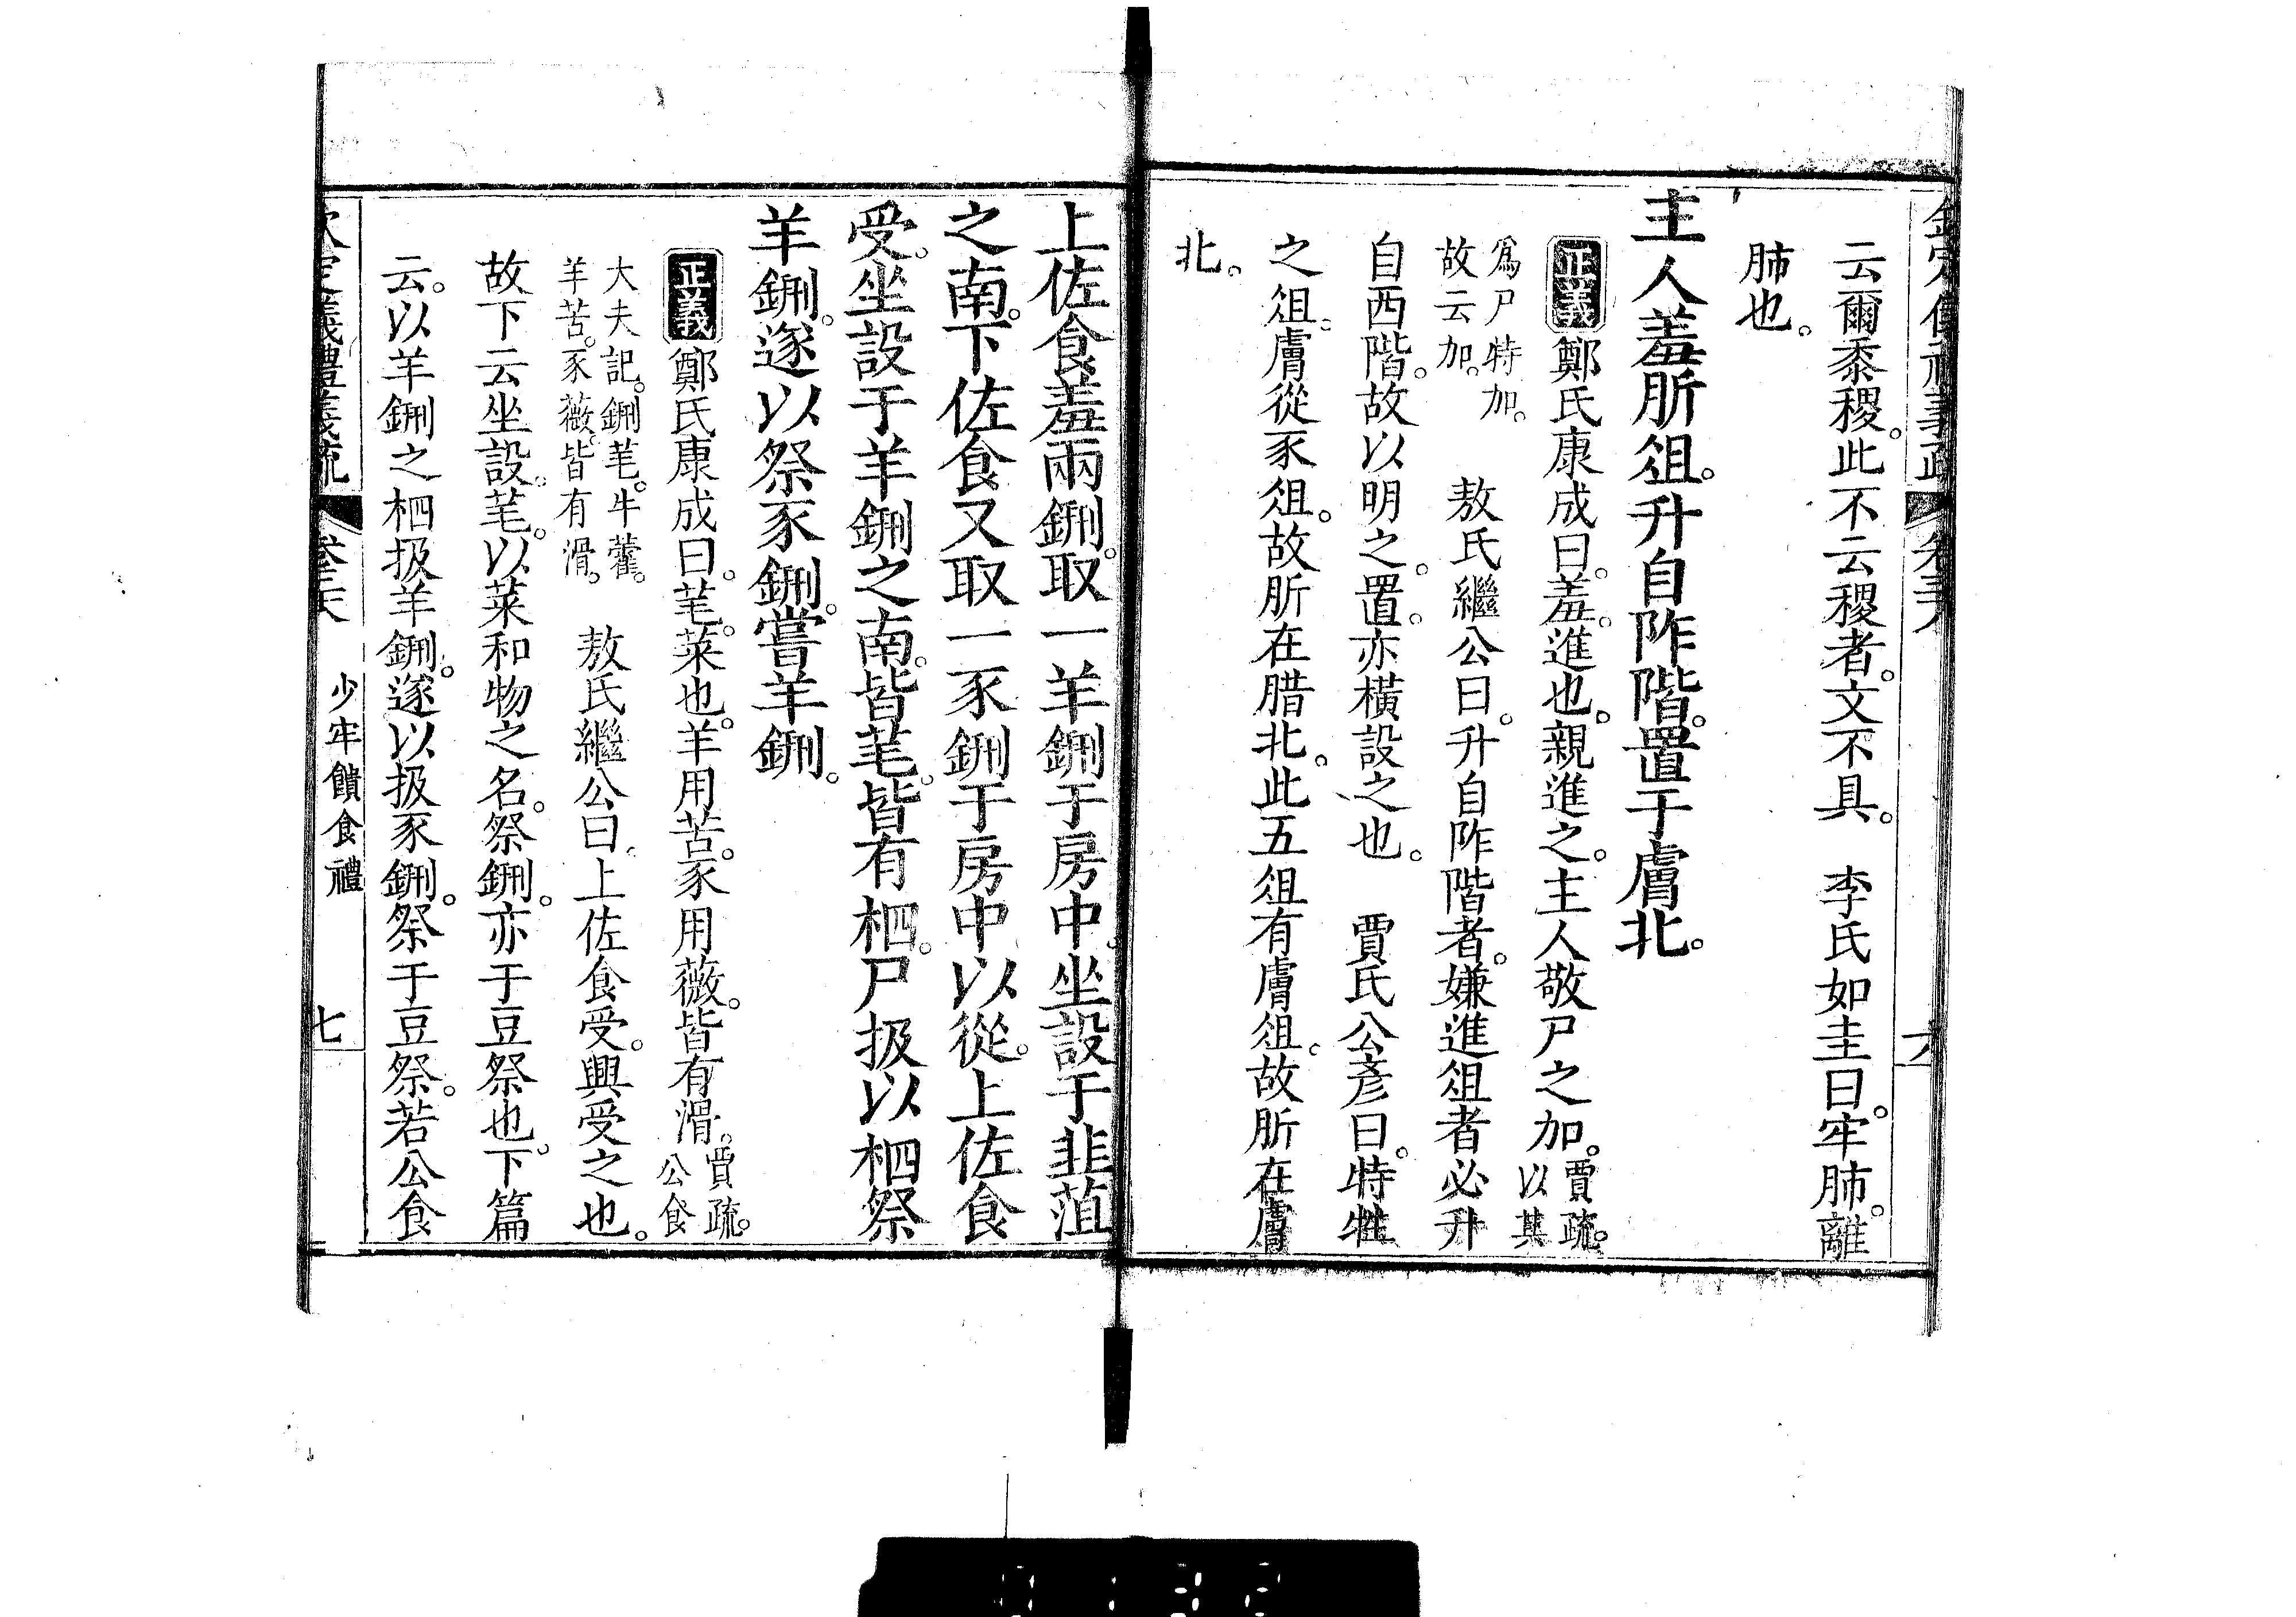 云爾黍稷。此不云稷者。文不具。　李氏如圭曰。牢肺。離
肺也。
主人羞肵俎。升自阼階。置于膚北。
正義鄭氏康成曰。羞。進也。親進之。主人敬尸之加。賈疏。以其
爲尸特加。故云加。　敖氏繼公曰。升自阼階者。嫌進俎者必升
自西階。故以明之。置。亦橫設之也。　賈氏公彥曰。特牲
之俎。膚從豕俎。故肵在腊北。此五俎有膚俎。故肵在膚
北。
上佐食羞兩鉶。取一羊鉶于房中。坐設于韭菹
之南。下佐食又取一豕鉶于房中以從。上佐食
受。坐設于羊鉶之南。皆芼。皆有柶。尸扱以柶祭
羊鉶。遂以祭豕鉶。嘗羊鉶。
正義鄭氏康成曰。芼。菜也。羊用苦。豕用薇。皆有滑。賈疏。公食
大夫記。鉶芼。牛藿。羊苦。豕薇。皆有滑。　敖氏繼公曰。上佐食受。興受之也。
故下云坐設。芼。以菜和物之名。祭鉶。亦于豆祭也。下篇
云。以羊鉶之柶扱羊鉶。遂以扱豕鉶。祭于豆祭。若公食
欽定義禮義疏　卷三六　少牢饋食禮　七